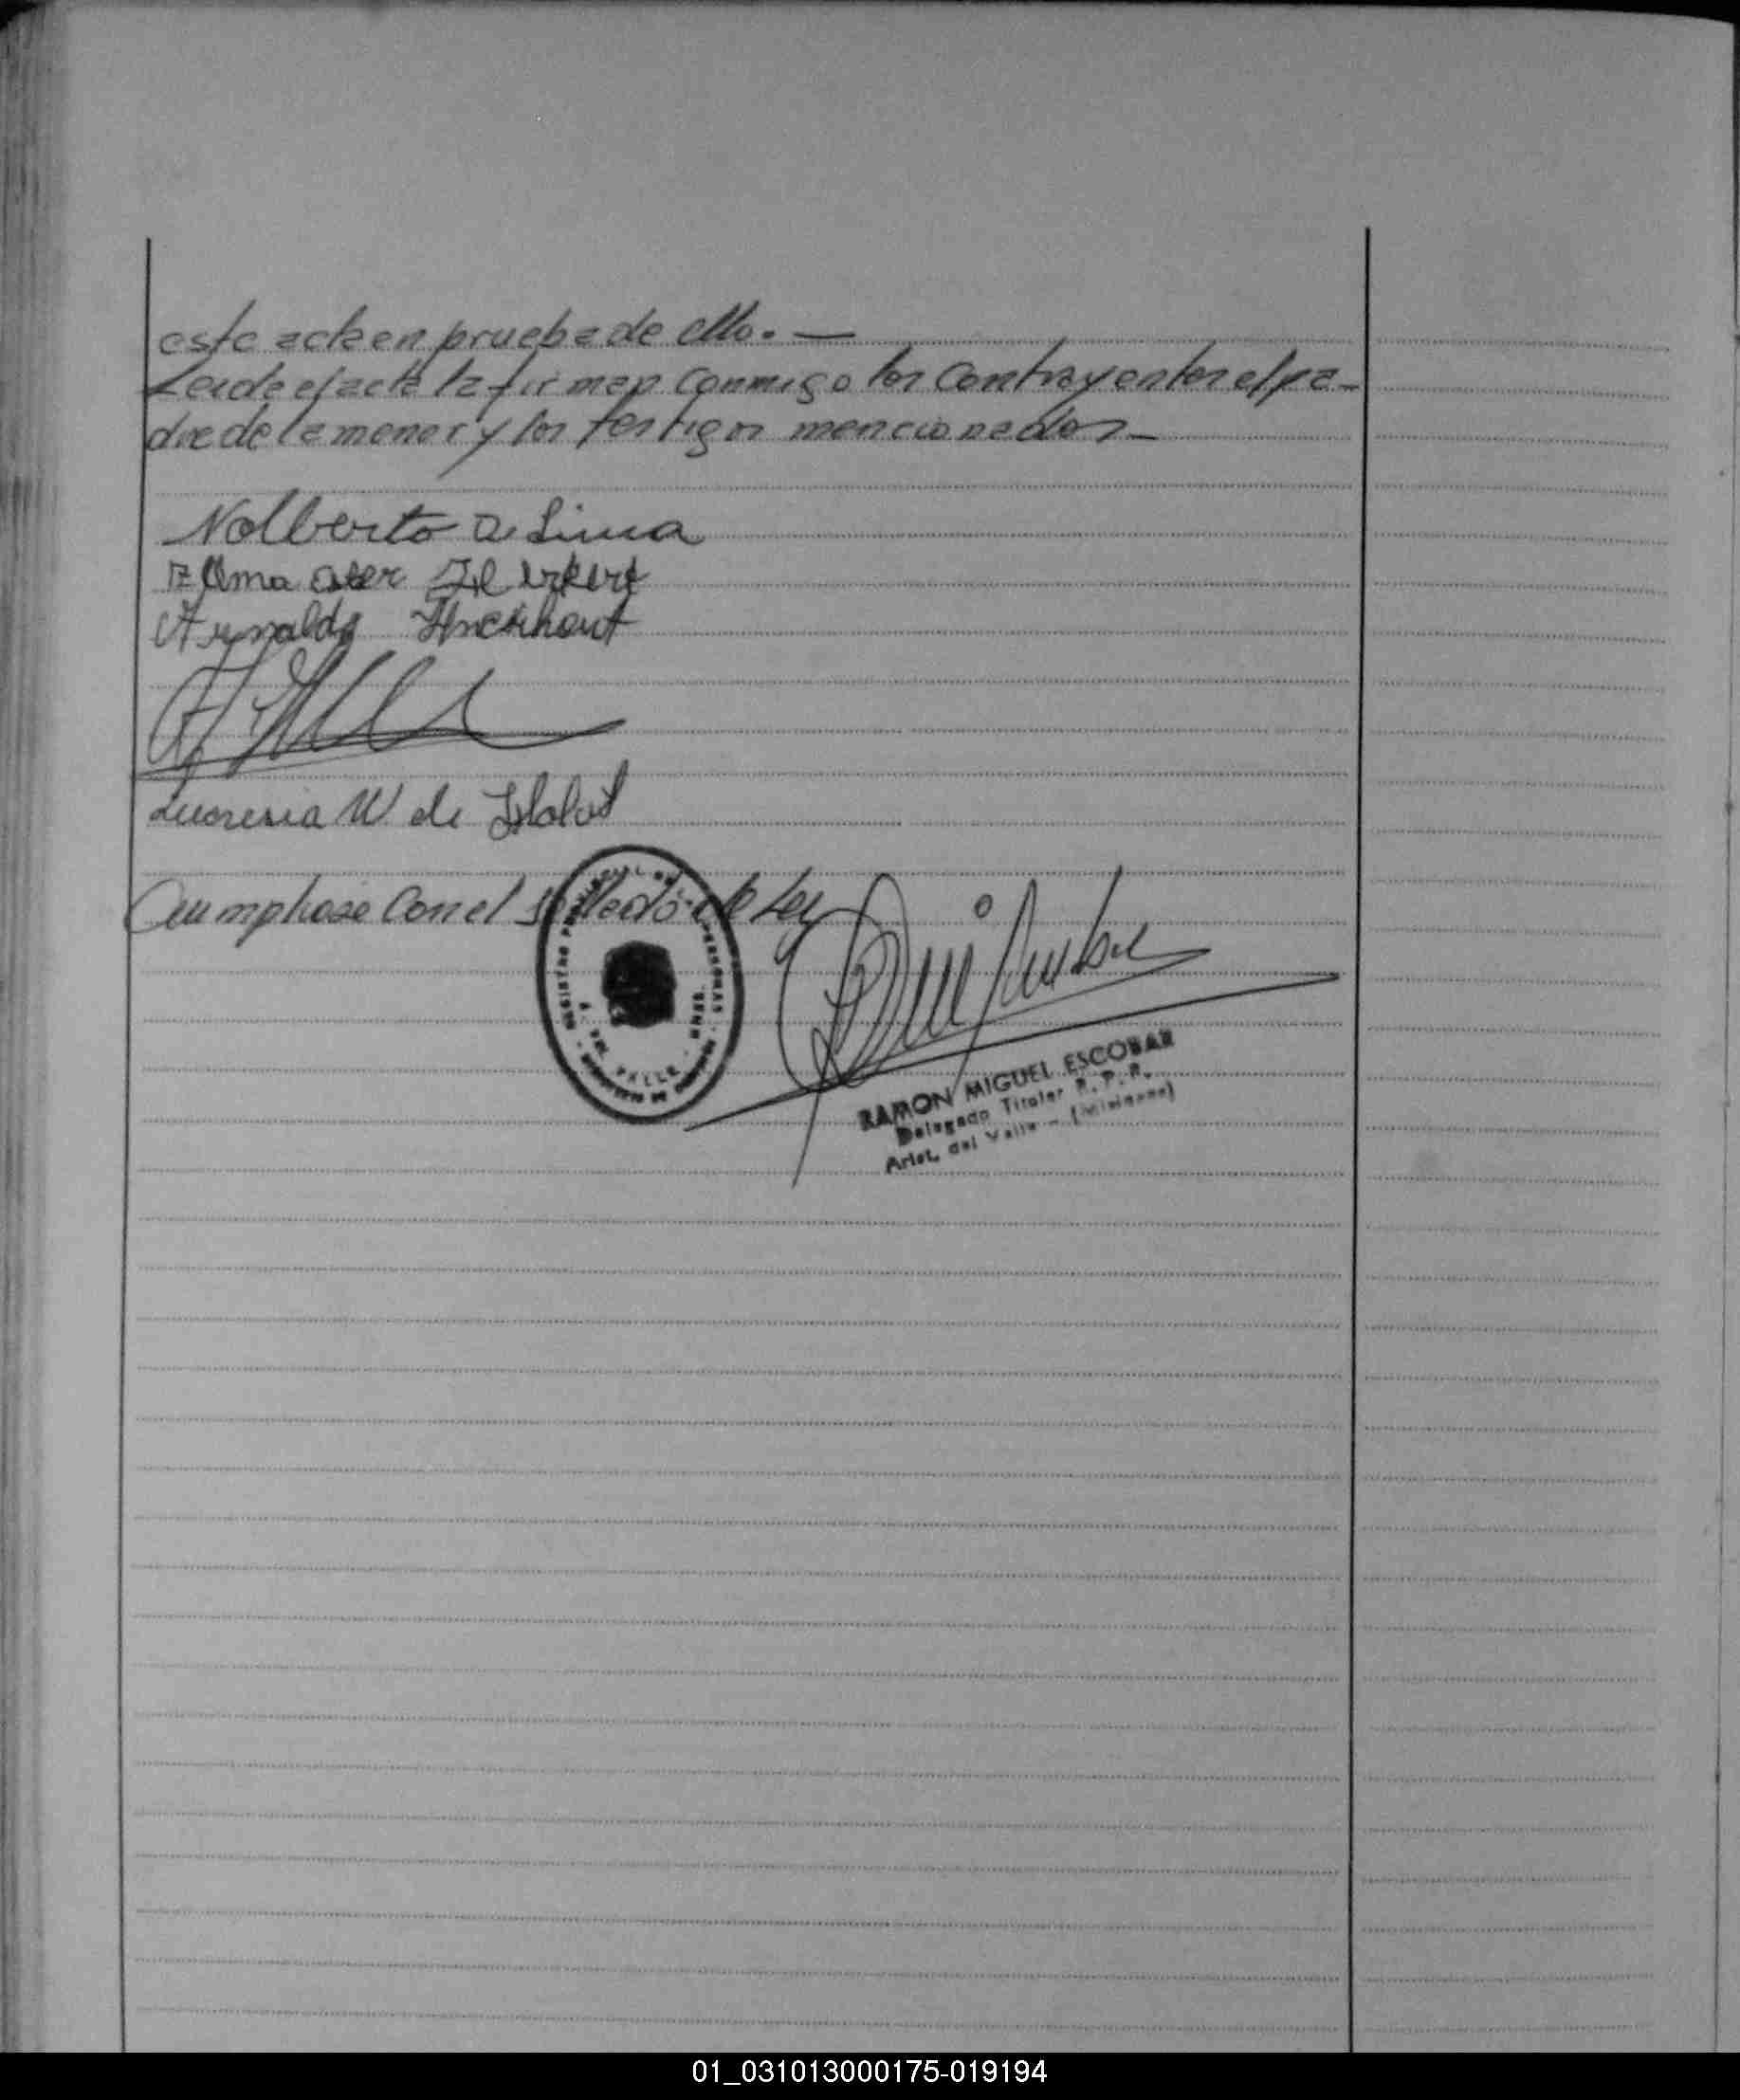 este acta en prueba de ello. —
Leida el acta la firman conmigo los Contrayentes el pa-
dre de la menor y los testigos mencionados —
Nolberto De Lima
Arnaldo
W de
Cumplase con el sellado de Ley
REGISTRO PERSONAS
A. DEL VALLE - MNES.
RAMON MIGUEL ESCOBAR
Delegado Titular R. P. P.
Arist. del Valle - (Misiones)
01_031013000175-019194